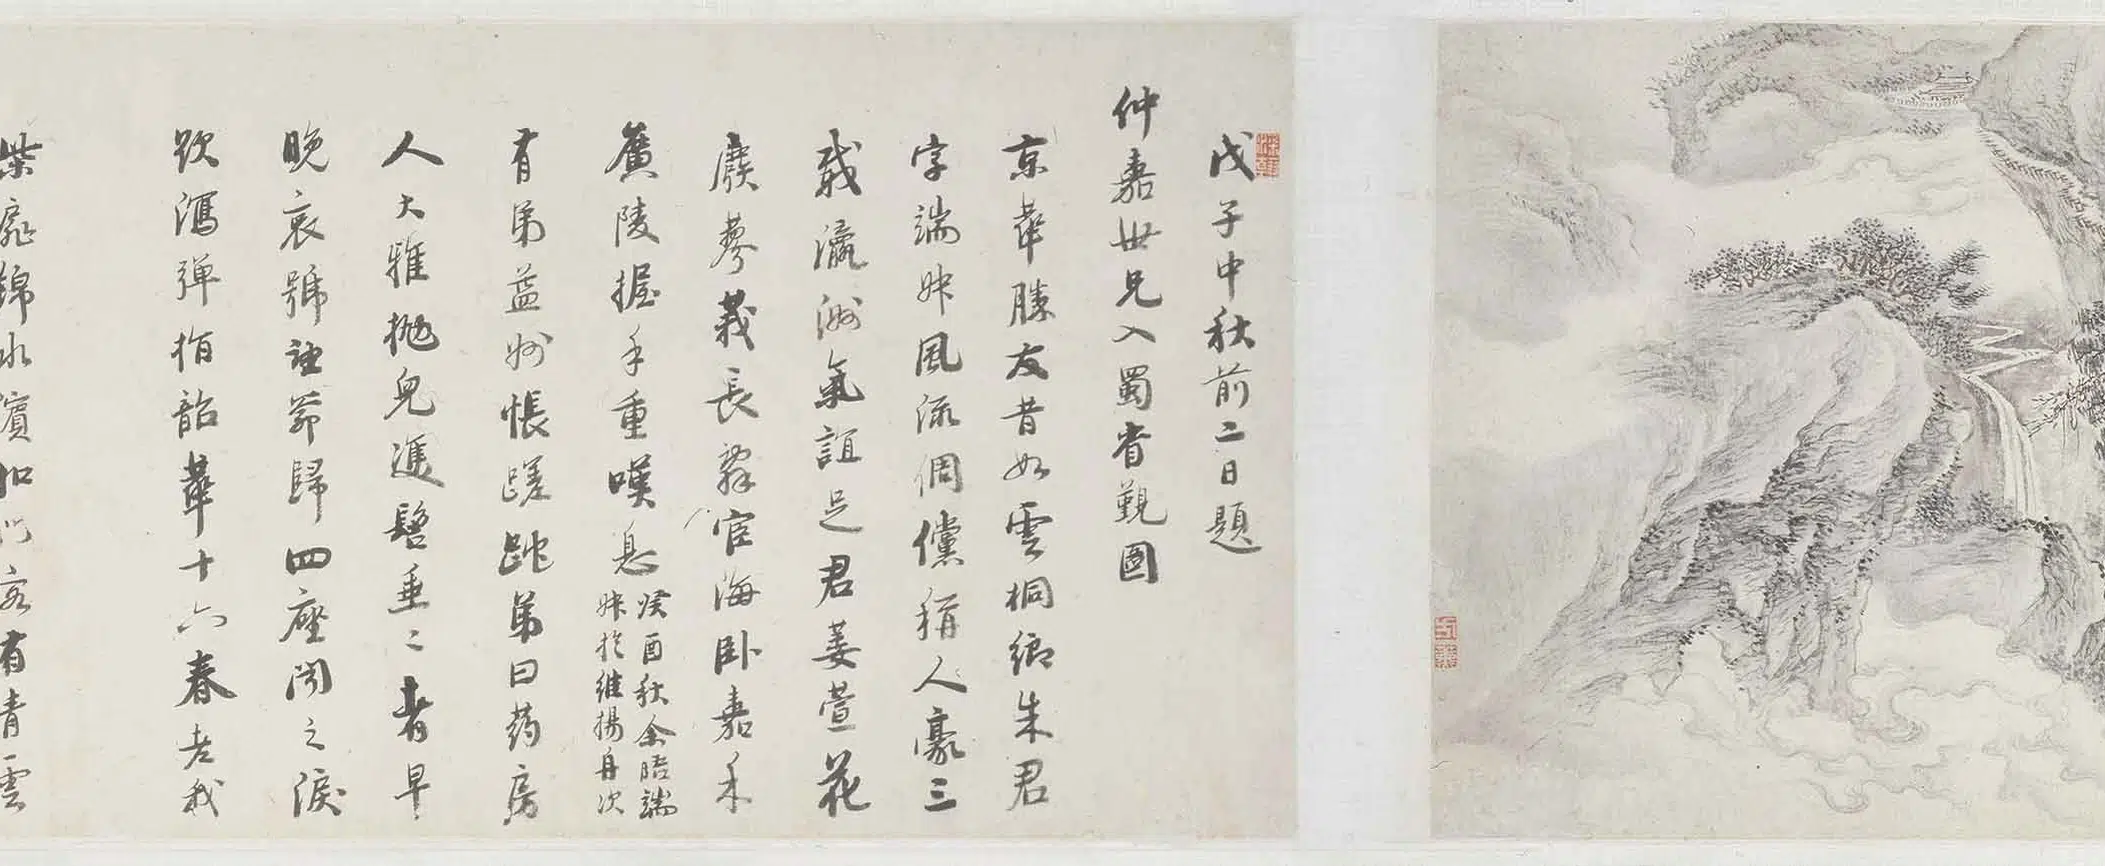 戊子中秋前二日題
仲嘉世兄入蜀省覲圖
京華勝友昔如雲桐鄉朱君
字端姝風流倜儻稱人豪三
載瀛洲氣誼足君姜萱花
廢蓼莪長辭宦海臥嘉禾
廣陵握手重嘆息
癸酉秋余晤端
姝於維揚舟次
有弟益州悵蹉跎弟曰葯房
人大雅拋兒遽髫垂之者早
晚哀號謝節歸四座聞之淚
欲瀉彈指韶華十六春老我
柴扉錦水濱扣門客有青雲